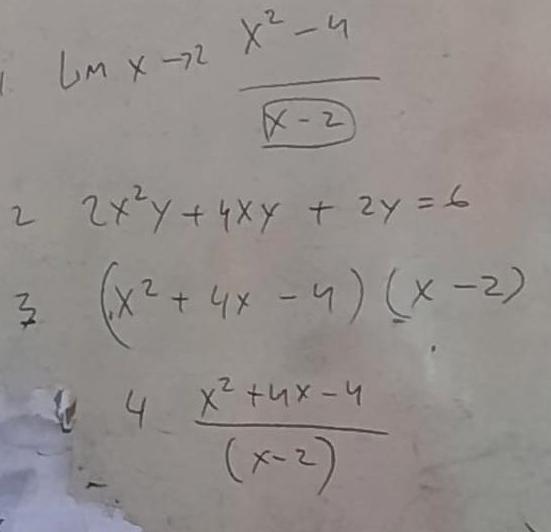 1 Lim x→2 (x² - 4)/(x - 2)
2 2x²y + 4xy + 2y = 6
3 (x² + 4x - 4) (x - 2)
4 (x² + 4x - 4)/(x - 2)